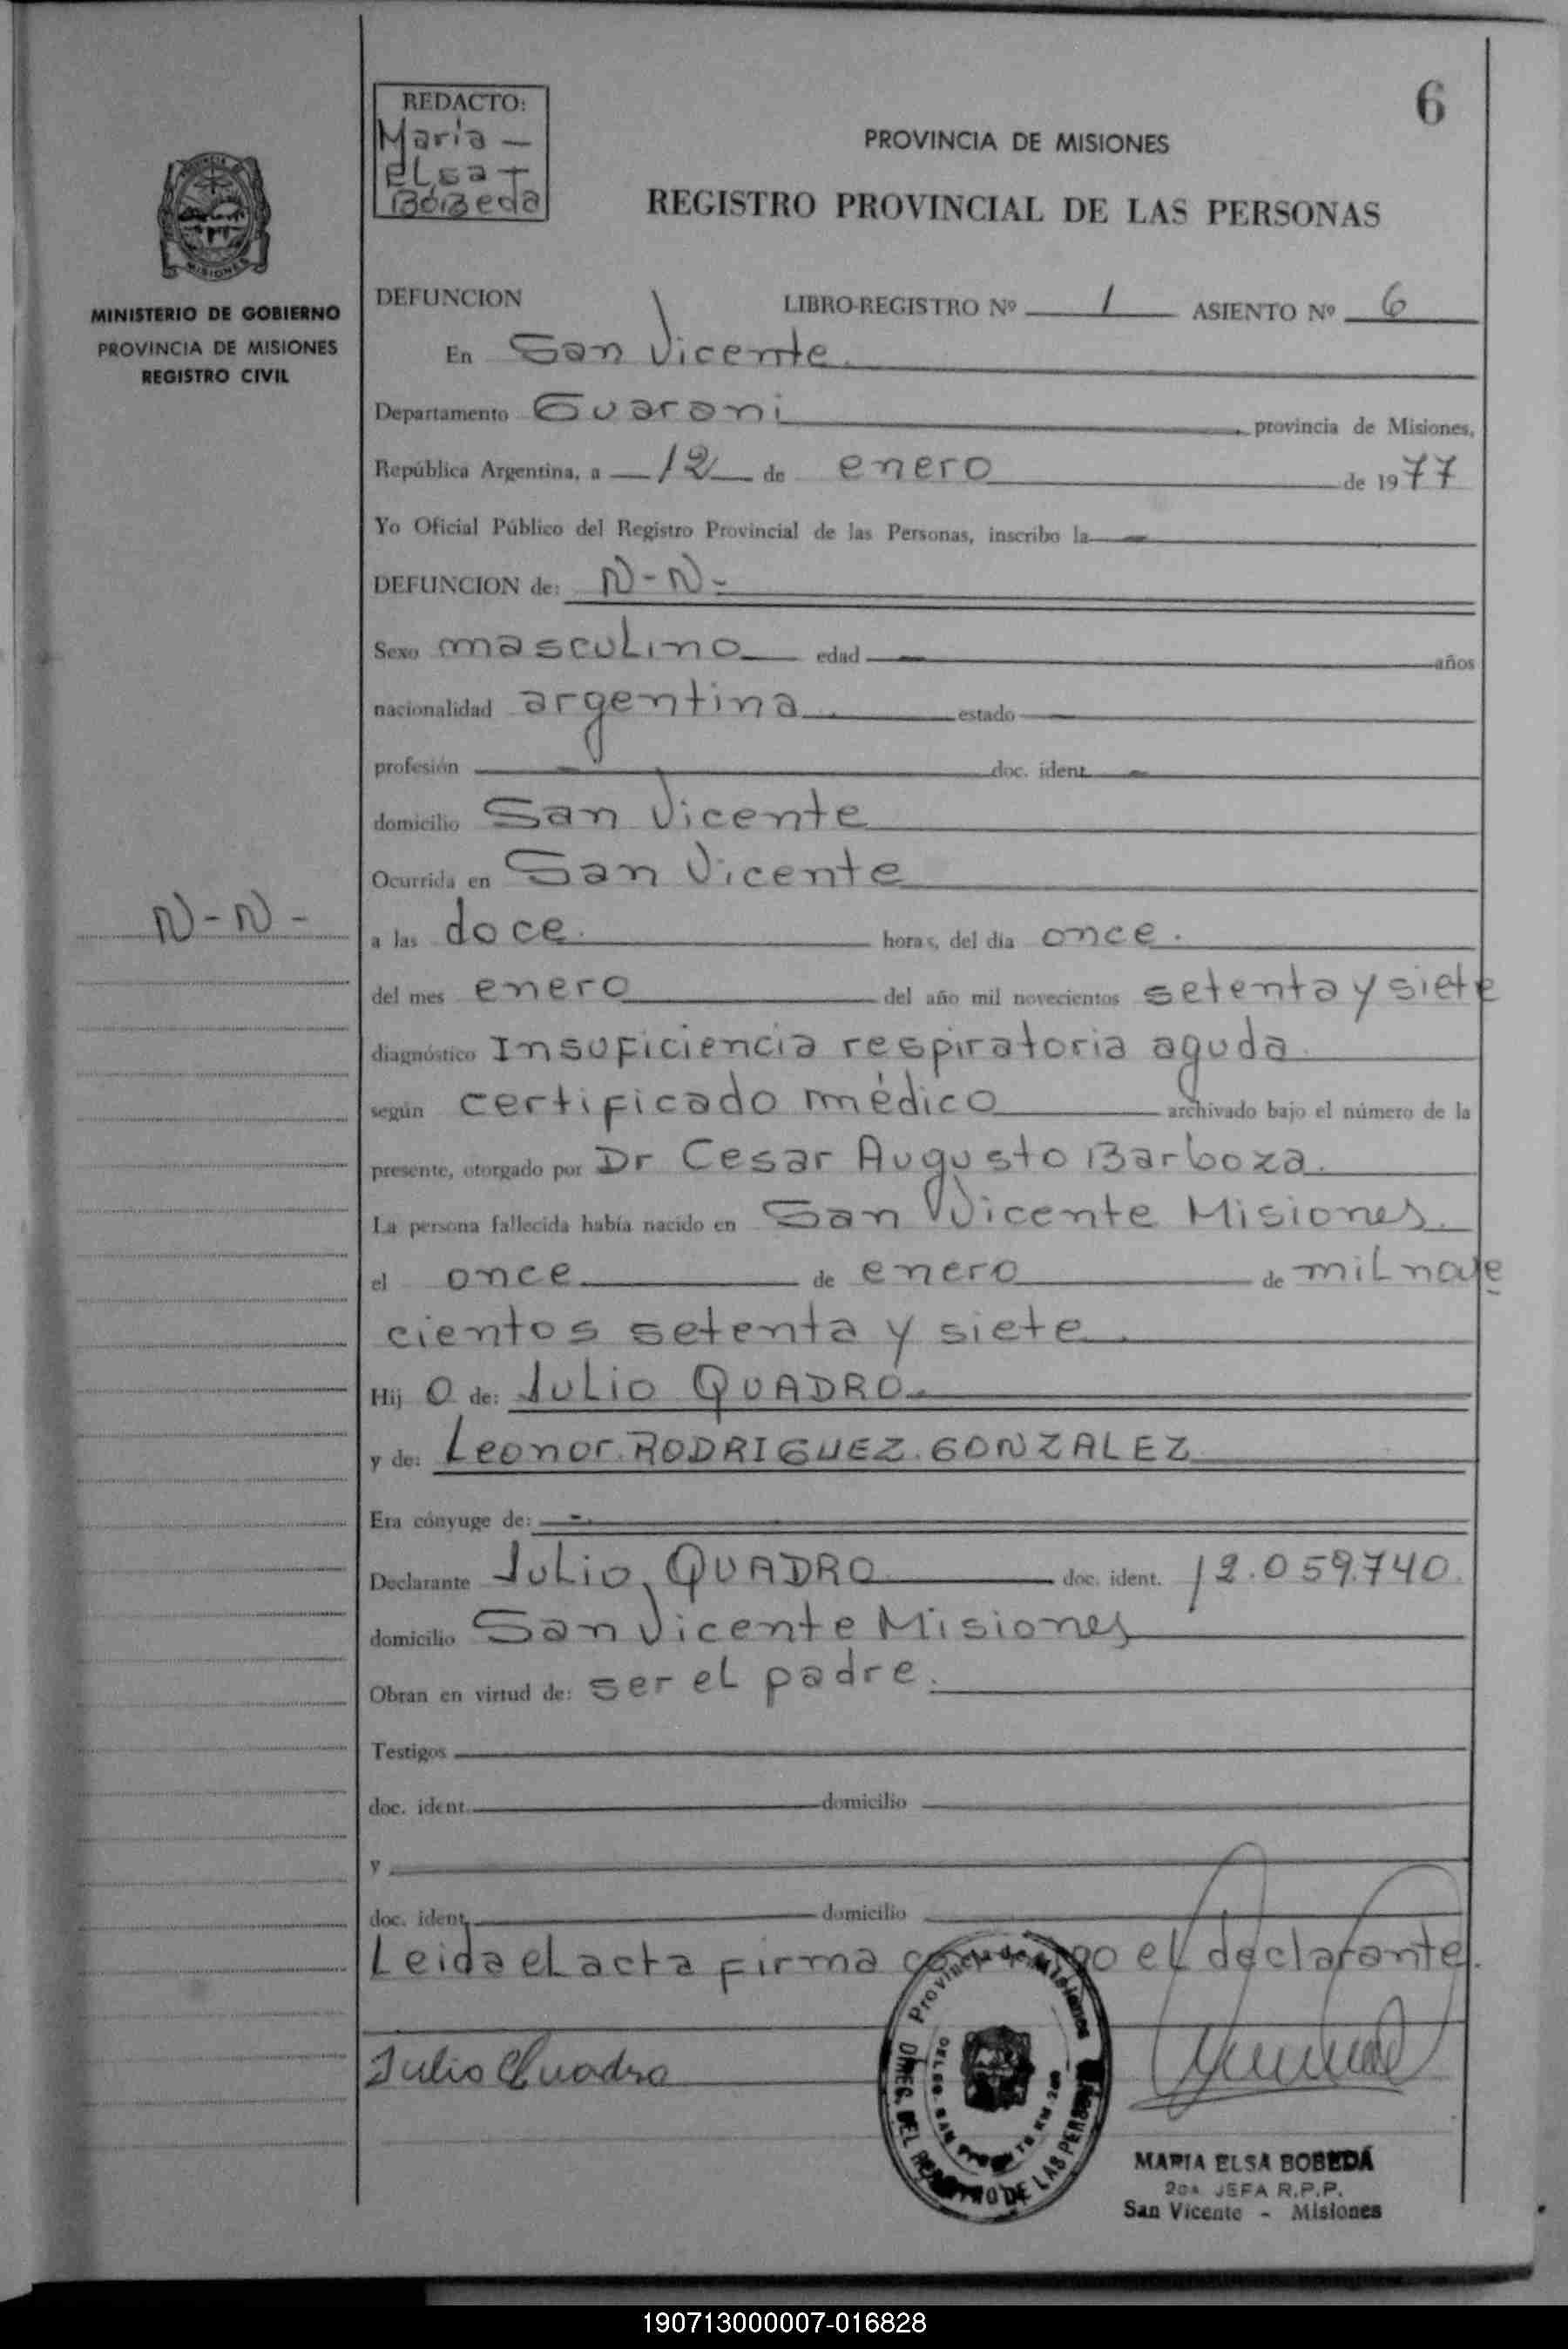 REDACTO:
Maria -
eLsa -
BoBeda
6
PROVINCIA DE MISIONES
REGISTRO PROVINCIAL DE LAS PERSONAS
MISIONES
MINISTERIO DE GOBIERNO
PROVINCIA DE MISIONES
REGISTRO CIVIL
DEFUNCION LIBRO-REGISTRO Nº 1 ASIENTO Nº 6
En San Vicente.
Departamento Guarani provincia de Misiones,
República Argentina, a 12 de enero de 1977
Yo Oficial Público del Registro Provincial de las Personas, inscribo la -
DEFUNCION de: N-N-
Sexo masculino edad - años
nacionalidad argentina estado -
profesión - doc. ident. -
domicilio San Vicente
Ocurrida en San Vicente
N-N-
a las doce. horas, del día once.
del mes enero del año mil novecientos setenta y siete
diagnóstico Insuficiencia respiratoria aguda.
según certificado médico archivado bajo el número de la
presente, otorgado por Dr Cesar Augusto Barboza.
La persona fallecida había nacido en San Vicente Misiones.
el once de enero de mil nove
cientos setenta y siete.
Hij o de: Julio QUADRO.
y de: Leonor RODRIGUEZ GONZALEZ
Era cónyuge de: -.
Declarante Julio QUADRO doc. ident. 12.059.740.
domicilio San Vicente Misiones
Obran en virtud de: ser el padre.
Testigos
doc. ident. domicilio
y
doc. ident. domicilio
Leida el acta firma conmigo el declarante.
Julio Quadro
Provincia de Misiones
DIREC. DEL REGISTRO DE LAS PERSONAS
MARIA ELSA BOBEDA
2da JEFA R.P.P.
San Vicente - Misiones
190713000007-016828